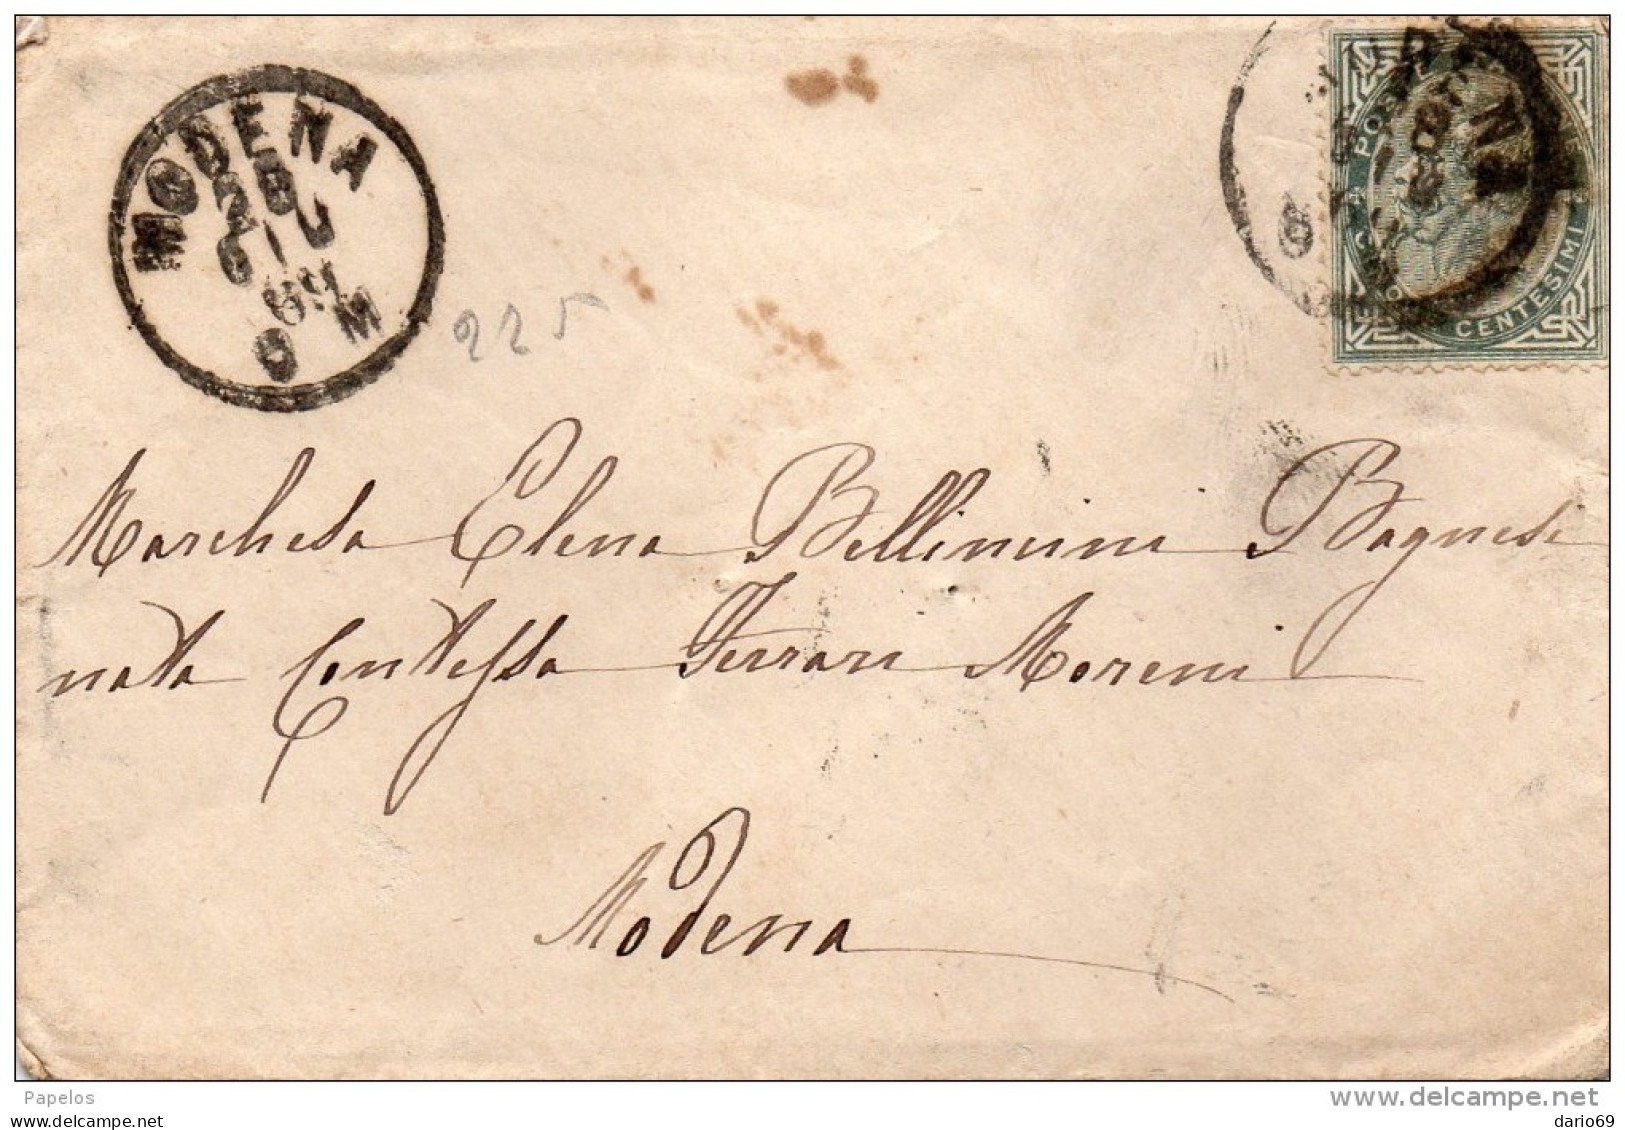 MODENA
28
GIU
89
6 M
225
CENTESIMI
Marchesa Elena Bellincini Bagnesi
nata Contessa Ferrari Moreni
Modena
Papelos
www.delcampe.net
dario69